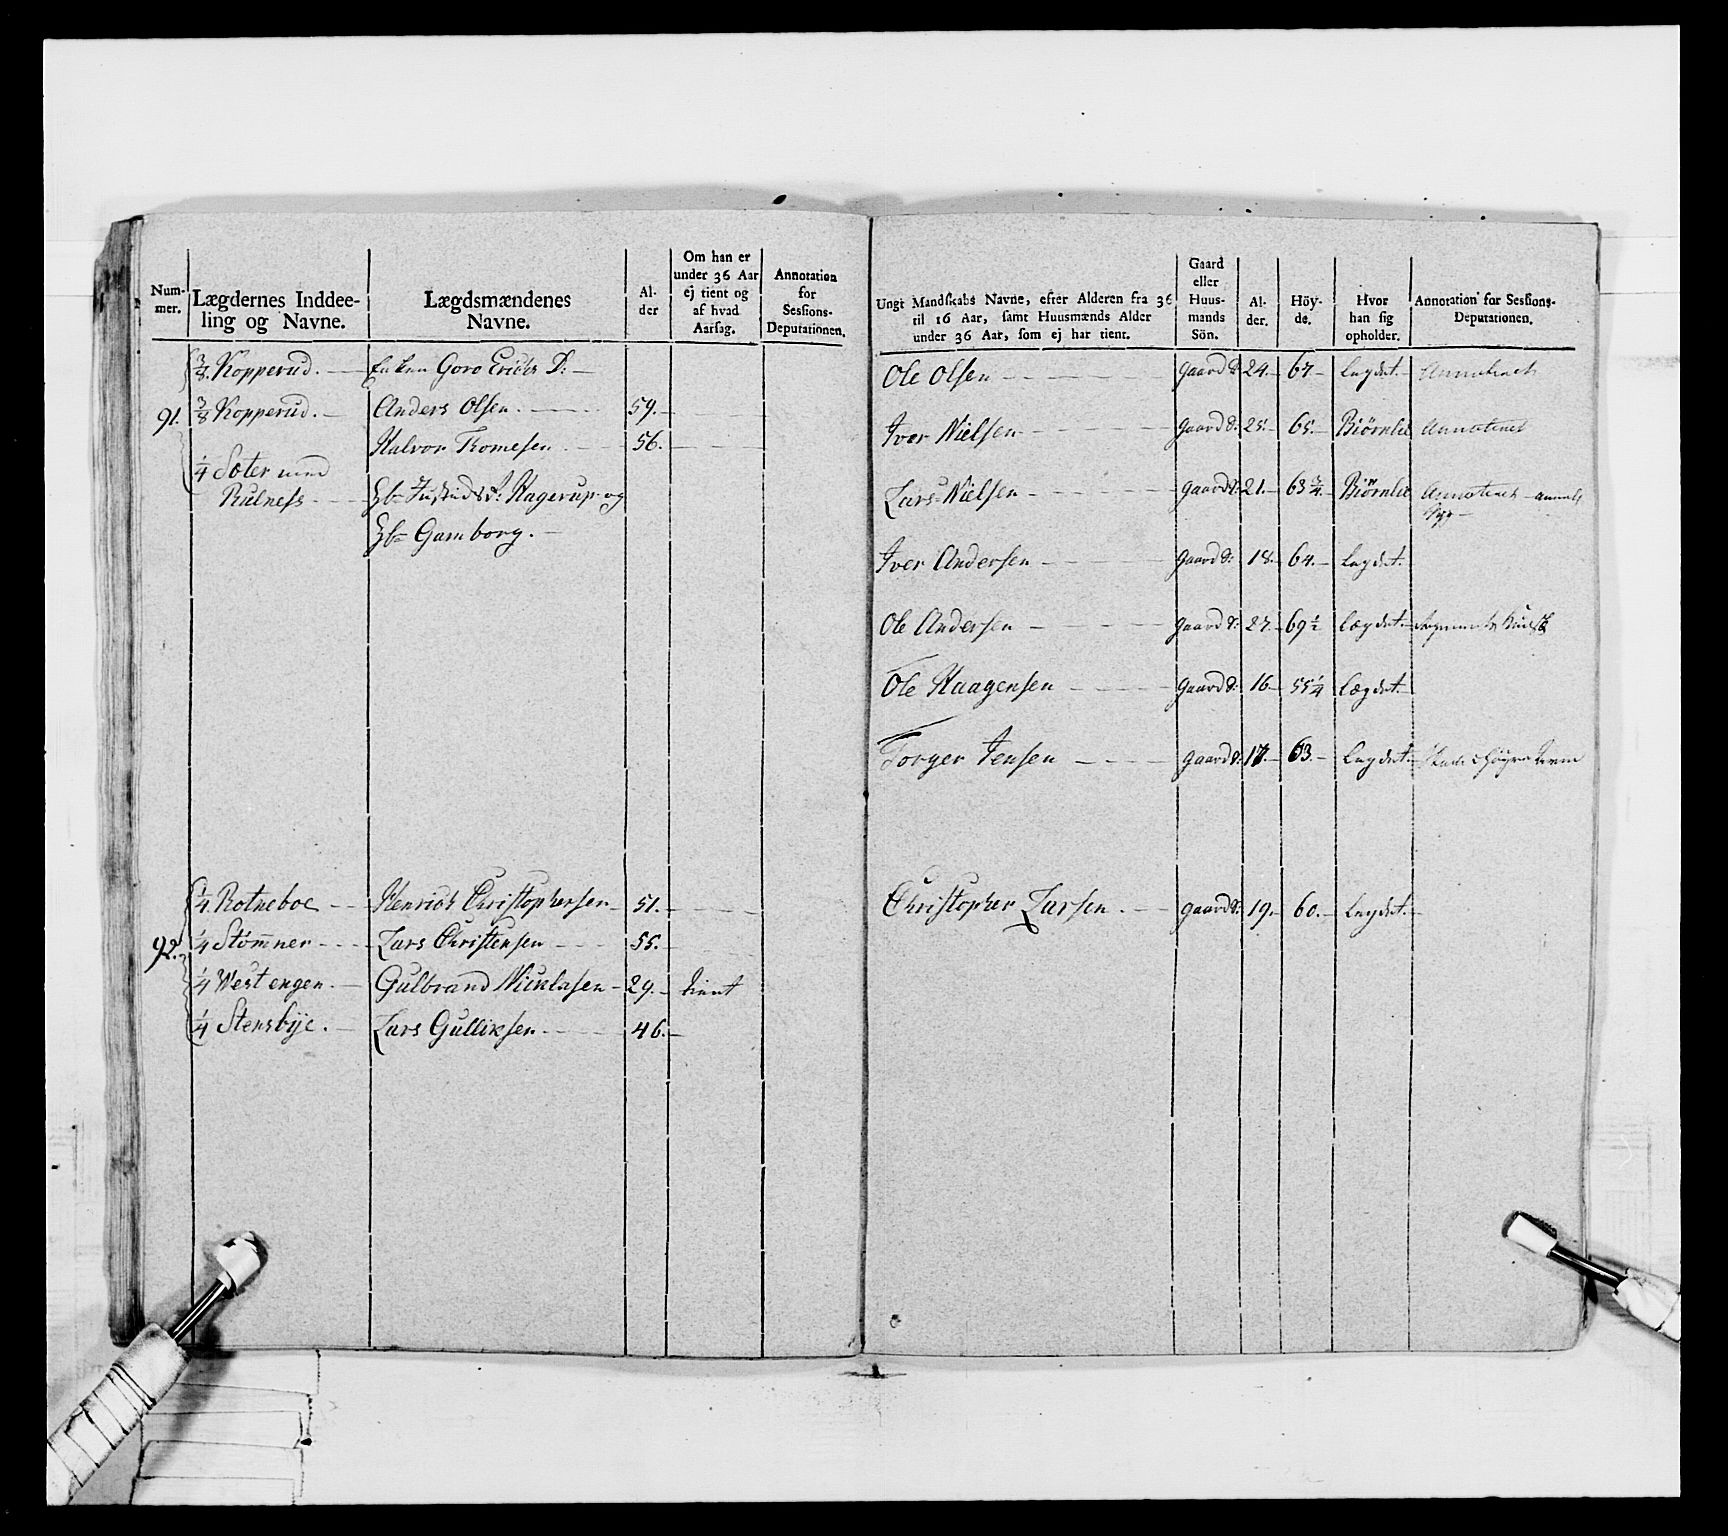 Num-
mer.
Lægdernes Inddee-
ling og Navne.
Lægdsmændenes
Navne.
Al-
der
Om han er
under 36 Aar
ej tient og
af hvad
Aarsag.
Annotation
for
Sessions-
Deputationen.
3/8 Kopperud. Goro D:
91. 3/8 Kopperud. Anders Olsen. 59.
Halvor Tomesen 56.
1/4 Soter med
Rulness Hagerup og
Gamborg.
1/4 Rotneboe Henrich Christophersen 51.
92. 1/4 Stömner Lars Christensen 55.
1/4 Westengen. Gulbrand Nicolasen 29. tient
1/4 Stensbye. Lars Gulliksen 46.
Ungt Mandskabs Navne, efter Alderen fra 36
til 16 Aar, samt Huusmænds Alder
under 36 Aar, som ej har tient.
Gaard
eller
Huus-
mands
Sön.
Al-
der.
Höy-
de.
Hvor
han sig
opholder.
Annotation for Sessions-
Deputationen.
Ole Olsen Gaard S: 24. 67. Lægdet. Annoteret
Iver Nielsen Gaard S: 25. 65. Biörnlie Annoteret
Lars Nielsen Gaard S: 21. 63 3/4. Biörnlie Annoteret
Iver Andersen Gaard S: 18. 64. Lægdet.
Ole Andersen Gaard S: 27. 69 1/2 Lægdet.
Ole Haagensen Gaard S: 16. 55 1/4 Lægdet.
Torger Jensen Gaard S: 17. 63. Lægdet.
Christopher Larsen. Gaard S: 19. 60. Lægdet.